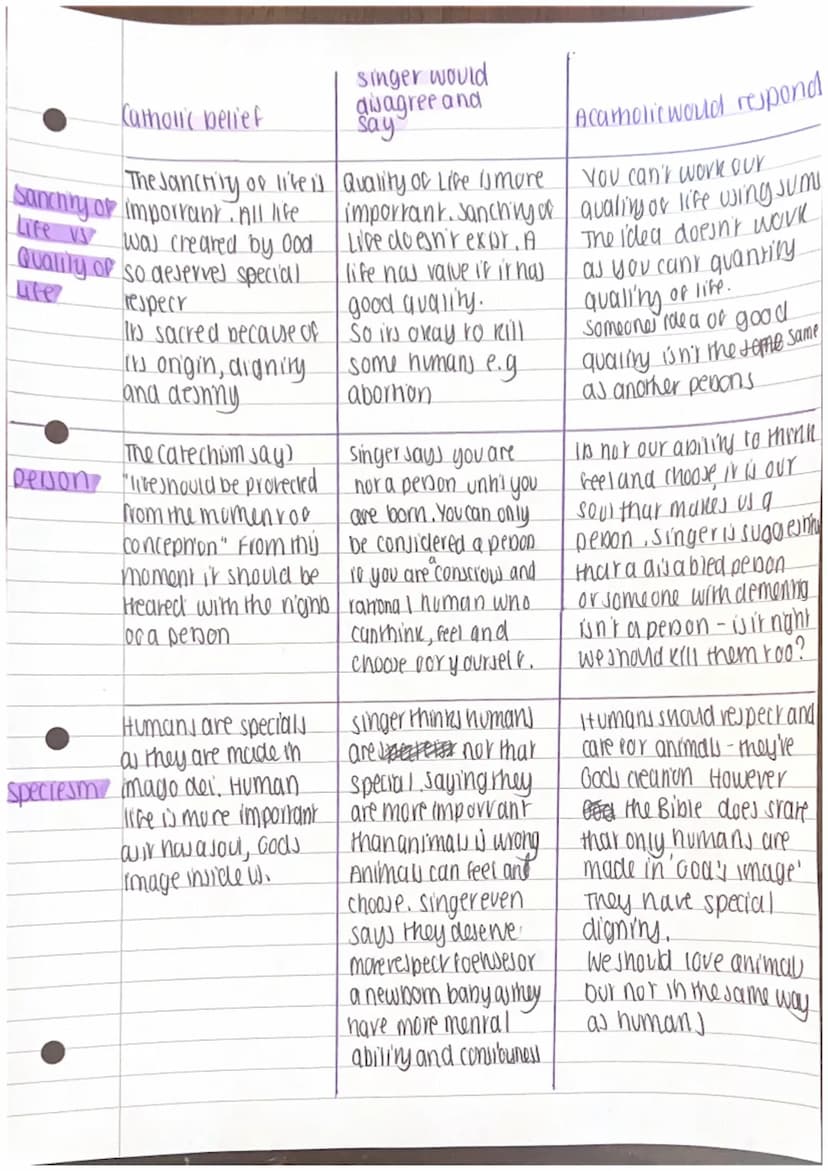 Catholic belief
singer would
disagree and
say
A catholic would respond
Sanctity of
Life vs
Quality of
life
The sanctity of life is
important. All life
was created by God
so deserves special
respect
Its sacred because of
its origin, dignity
and destiny
Quality of Life is more
important. Sanctity of
Life doesn't exist. A
life has value if it has
good quality.
So its okay to kill
some humans e.g
abortion
You can't work out
quality of life using sums
The idea doesn't work
as you cant quantity
quality of life.
Someones idea of good
quality isn't the same
as another persons
person
The Catechism says
"life should be protected
from the moment of
conception" From this
moment it should be
treated with the rights
of a person
Singer says you are
not a person until you
are born. You can only
be considered a person
if you are a conscious and
rational human who
can think, feel and
choose for yourself.
Its not our ability to think
feel and choose, it is our
soul that makes us a
person. Singer is suggesting
that a disabled person
or someone with dementia
isn't a person - is it right
we should kill them too?
speciesm
Humans are specials
as they are made in
imago dei. Human
life is more important
as it has a soul, Gods
image inside us.
Singer thinks humans
are not that
special. Saying they
are more important
than animals is wrong
Animals can feel and
choose. Singer even
says they deserve
more respect foetuses or
a newborn baby as they
have more mental
ability and consciousness
Humans should respect and
care for animals - they're
Gods creation However
the Bible does state
that only humans are
made in 'God's image'
They have special
dignity.
We should love animals
but not in the same way
as humans